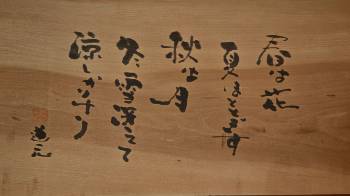 春は花
夏ほとゝぎす
秋は月
冬雪冴えて
涼しかりけり
道元